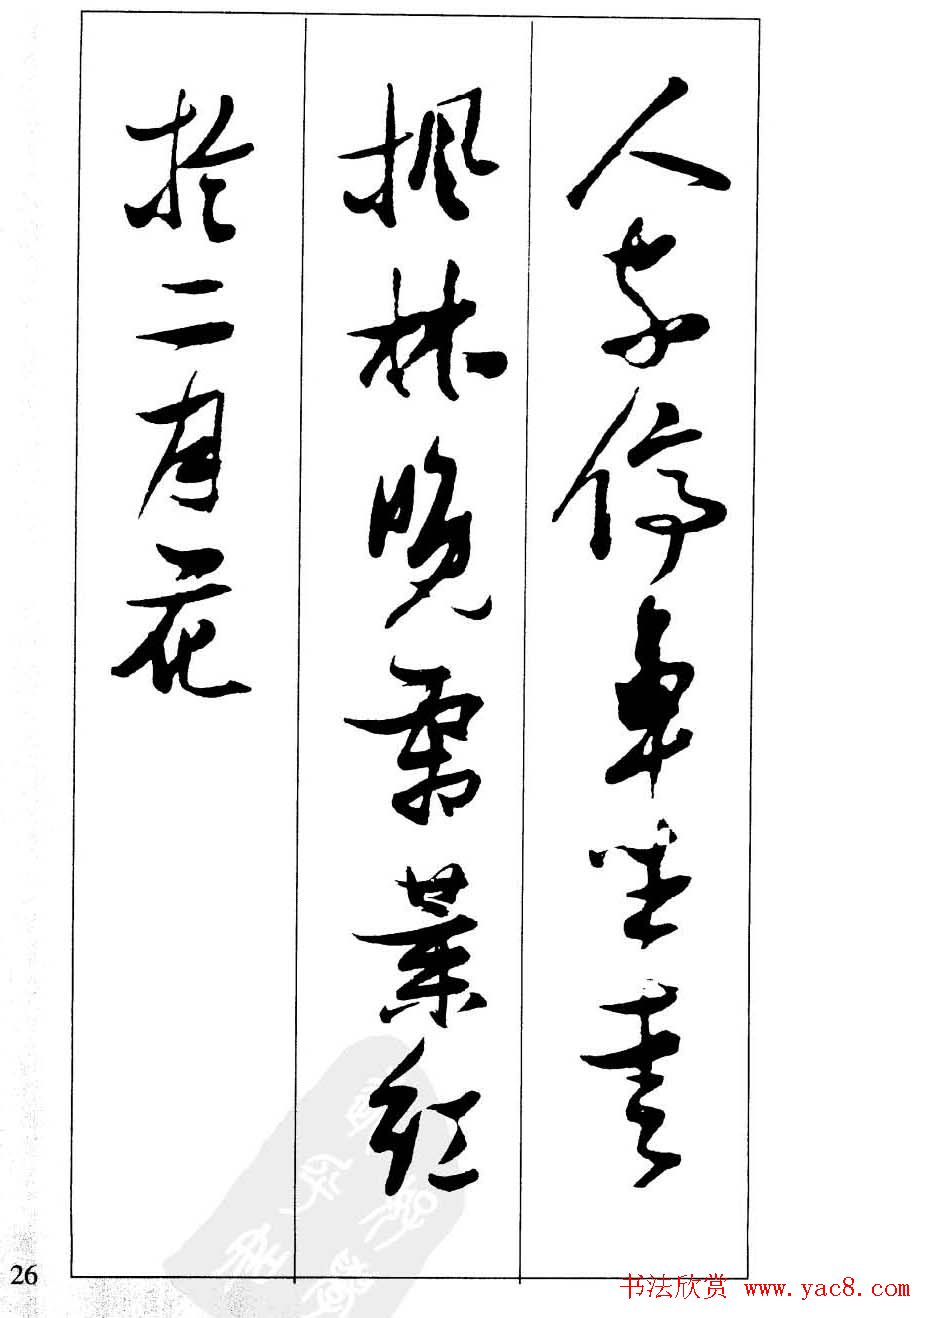 人家停車坐愛
楓林晚霜葉紅
於二月花
26
书法欣赏 www.yac8.com